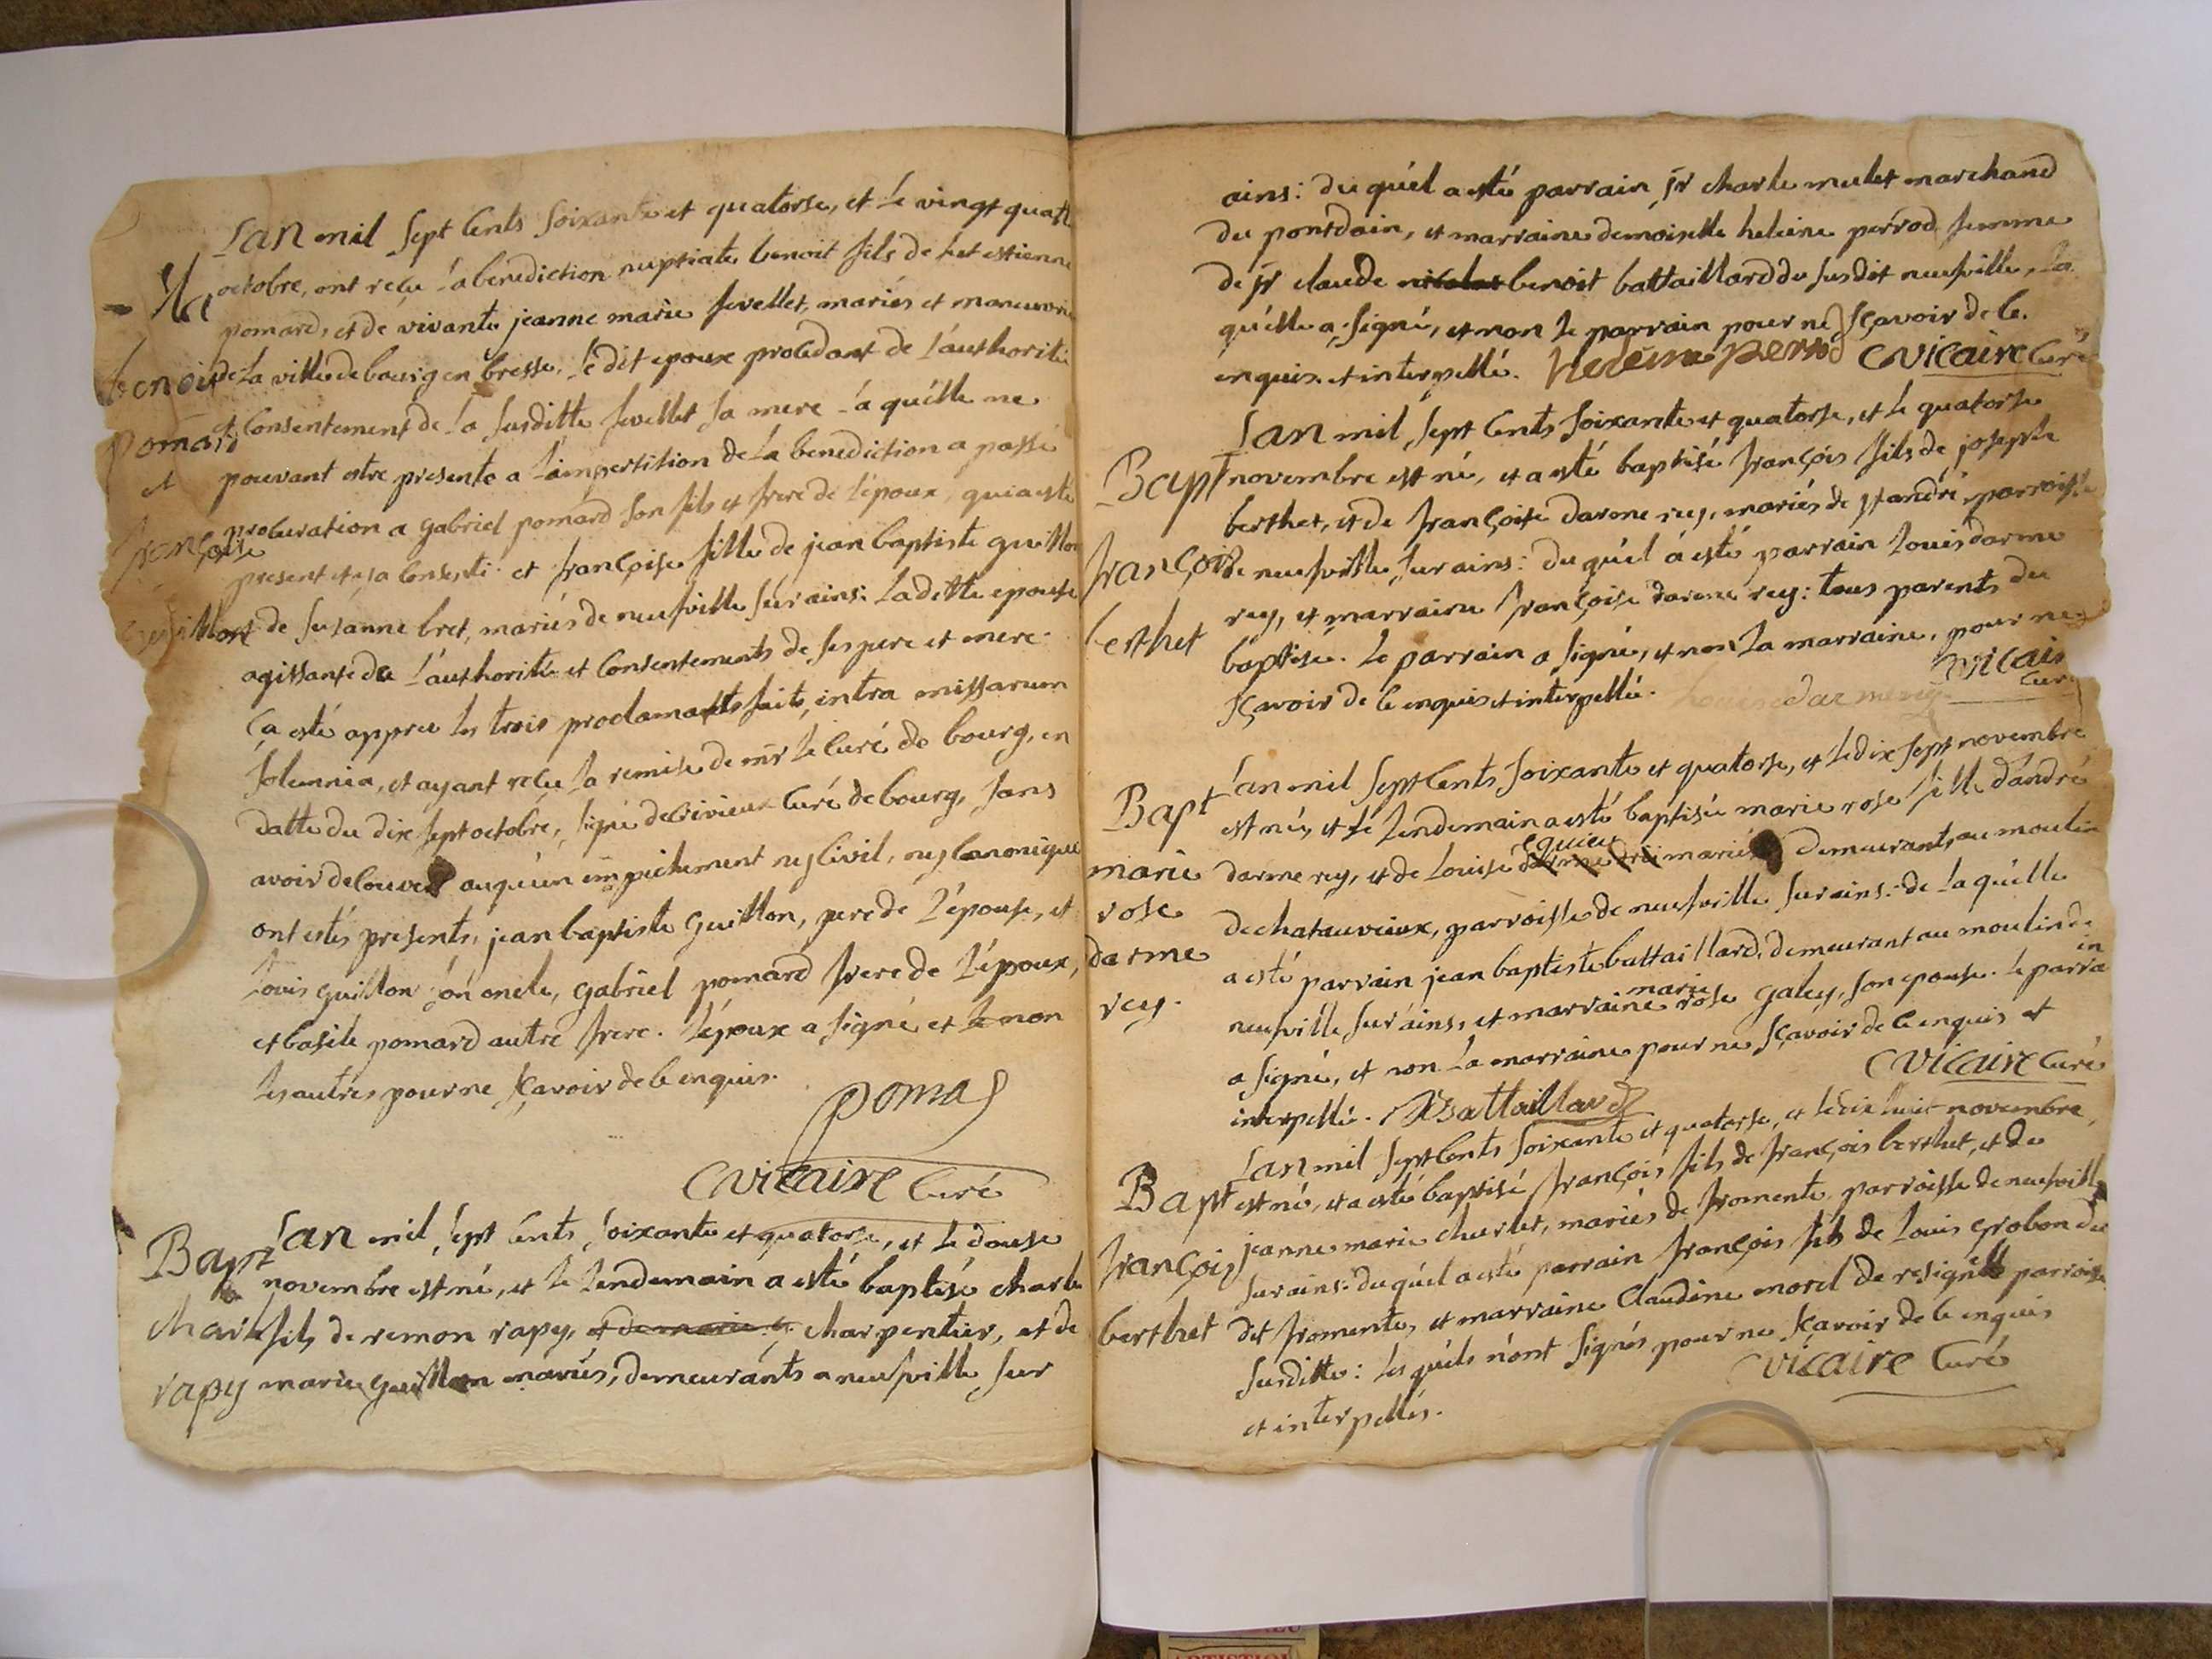 Lan mil sept cents soixante et quatorse, et le vingt quatre
Ma octobre, ont reçu la benediction nuptiale benoit fils de feu estienne
pomard, et de vivante jeanne marie fevellet, mariés et maneuvre
benoit de la ville de bourg en bresse, le dit epoux procedant de l'authorité
pomard et consentement de la susditte fevellet sa mere laquélle ne
et pouvant estre presente a l'impertition de la benediction a passé
françoise procuration a gabriel pomard son fils et frere de l'époux, qui a esté
present et y a consenti et françoise fille de jean baptiste guillon
guillon et de susanne bret, mariés de neufville sur ains: laditte epouse
agissante de l'authorité et consentements de ses pere et mere.
ça esté apprez les trois proclamats faits, intra missarum
solemnia, et ayant reçu la remise de mr le curé de bourg, en
datte du dix sept octobre, signé curé de bourg, sans
avoir decouvert auqu'un empechement ny civil, ny canonique
ont estés presents, jean baptiste guillon, pere de l'épouse, et
Louis guillon son oncle, gabriel pomard frere de l'époux,
et basile pomard autre frere. l'époux a signé et le non
les autres pour ne sçavoir de ce enquis.
poma
Cvicaire Curé
Bapt Lan mil sept cents soixante et quatorse, et le douse
novembre est né, et le lendemain a esté baptisé charle
charle fils de remon rapy, et de marie charpentier, et de
rapy marie guillon mariés, demeurants a neufville sur
ains: duquél a esté parrain sr charle mulet marchand
du pontdain, et marraine demoiselle heleine perrod femme
de sr claude nicolas benoit battaillard du susdit neufville, la
qu'élle a signé, et non le parrain pour ne sçavoir de ce
enquis et interpellé. heleine perrod Cvicaire Curé
Lan mil sept cents soixante et quatorse, et le quatorse
Bapt novembre est né, et a esté baptisé françois fils de joseph
berthet, et de françoise darme rey, mariés de st andré parroisse
françois de neufville sur ains: du quél a esté parrain louis darme
rey, et marraine françoise darme rey: tous parents du
berthet baptisé. le parrain a signé, et non la marraine, pour ne
sçavoir de ce enquis et interpellé. Louis darmerey Cvicaire
Curé
Lan mil sept cents soixante et quatorse, et le dix sept novembre
Bapt est née, et le lendemain a esté baptisée marie rose fille d'andré
marie darme rey, et de louise mariés demeurants au moulin
rose de chatauvieux, parroisse de neufville sur ains: de laquélle
darme a esté parrain jean baptiste battaillard, demeurant au moulin de
rey. neufville sur ains, et marraine marie rose galey, son epouse. le parrain
a signé, et non la marraine pour ne sçavoir de ce enquis et
interpellé. JBattaillard Cvicaire Curé
Lan mil sept cents soixante et quatorse, et le dix huit novembre,
Bapt est né, et a esté baptisé françois fils de françois berthet, et de
françois jeanne marie churlet, mariés de fromente parroisse de neufville
sur ains: duquél a esté parrain françois fils de louis grobon du
berthet dit fromente, et marraine claudine morel de resignell parroisse
susditte: les quéls n'ont signés pour ne sçavoir de ce enquis
et interpellés. Cvicaire Curé